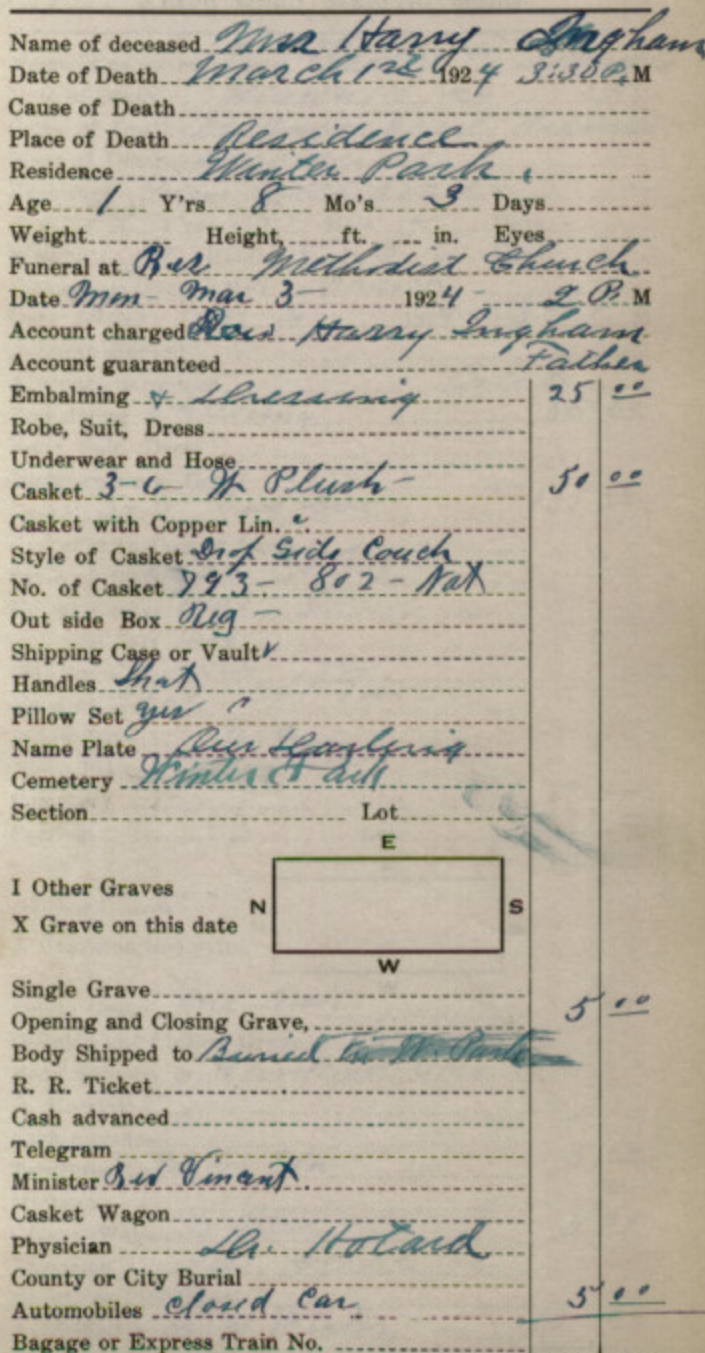 Name of deceased Harry Ingham
Date of Death March 1st 1924 3:30 P. M
Cause of Death
Place of Death Residence
Residence Winter Park
Age 1 Y'rs 8 Mo's 3 Days
Weight Height, ft. in. Eyes
Funeral at Methodist Church
Date Mon - Mar 3 - 1924 - 2 P. M
Account charged Harry Ingham
Account guaranteed Father
Embalming & Dressing 25 00
Robe, Suit, Dress
Underwear and Hose
Casket 3-6 W Plush - 50 00
Casket with Copper Lin.
Style of Casket Drop Side Couch
No. of Casket 793 - 802 - Nat
Out side Box Reg -
Shipping Case or Vault
Handles
Pillow Set yes
Name Plate Our Darling
Cemetery Winter Park
Section Lot
E
I Other Graves
N S
X Grave on this date
W
Single Grave
Opening and Closing Grave, 5 00
Body Shipped to Buried
R. R. Ticket
Cash advanced
Telegram
Minister Rev Vincent
Casket Wagon
Physician Dr. Hotard
County or City Burial
Automobiles Closed Car 5 00
Bagage or Express Train No.